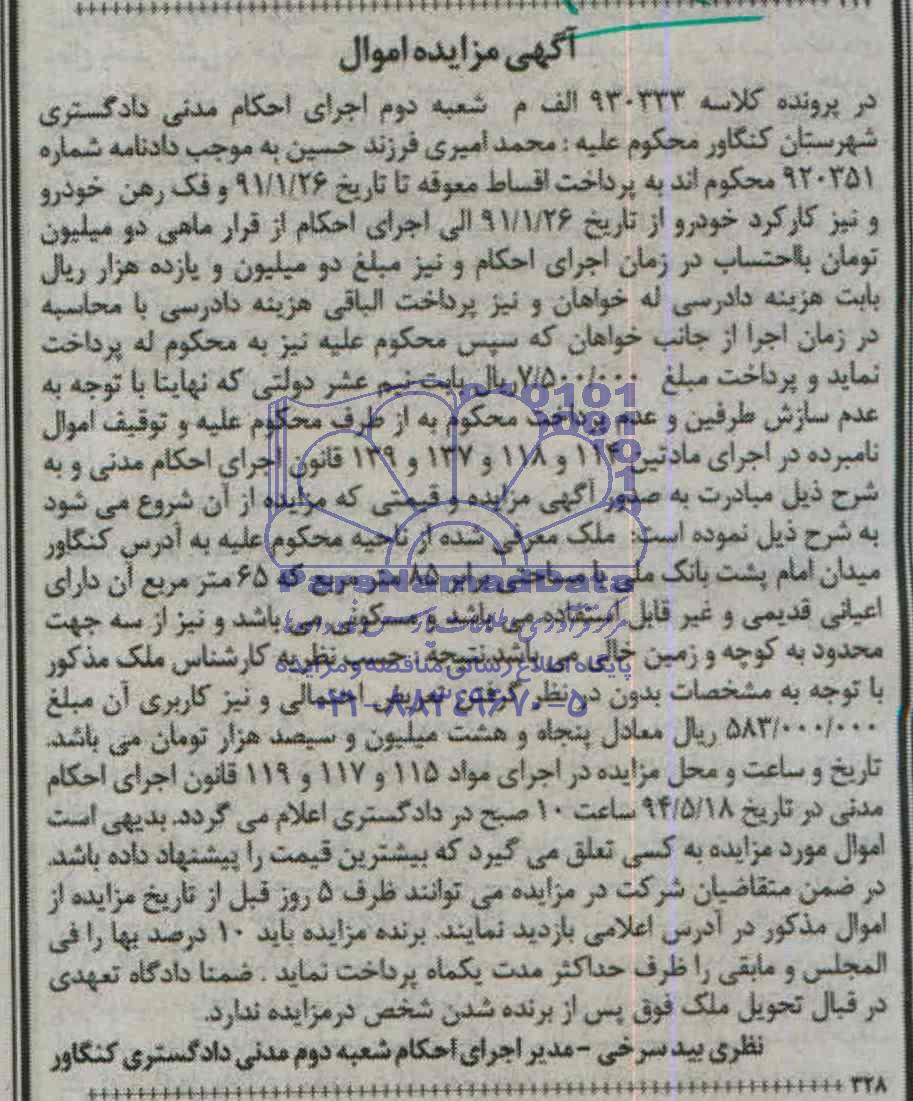 آگهی مزایده اموال
در پرونده کلاسه ۹۳۰۳۳۳ الف م شعبه دوم اجرای احکام مدنی دادگستری
شهرستان کنگاور محکوم علیه : محمد امیری فرزند حسین به موجب دادنامه شماره
۹۲۰۳۵۱ محکوم اند به پرداخت اقساط معوقه تا تاریخ ۹۱/۱/۲۶ و فک رهن خودرو
و نیز کارکرد خودرو از تاریخ ۹۱/۱/۲۶ الی اجرای احکام از قرار ماهی دو میلیون
تومان بااحتساب در زمان اجرای احکام و نیز مبلغ دو میلیون و یازده هزار ریال
بابت هزینه دادرسی له خواهان و نیز پرداخت الباقی هزینه دادرسی با محاسبه
در زمان اجرا از جانب خواهان که سپس محکوم علیه نیز به محکوم له پرداخت
نماید و پرداخت مبلغ ۷/۵۰۰/۰۰۰ ریال بابت نیم عشر دولتی که نهایتا با توجه به
عدم سازش طرفین و عدم پرداخت محکوم به از طرف محکوم علیه و توقیف اموال
نامبرده در اجرای مادتین ۱۱۴ و ۱۱۸ و ۱۳۷ و ۱۳۹ قانون اجرای احکام مدنی و به
شرح ذیل مبادرت به صدور آگهی مزایده و قیمتی که مزایده از آن شروع می شود
به شرح ذیل نموده است: ملک معرفی شده از ناحیه محکوم علیه به آدرس کنگاور
میدان امام پشت بانک ملی با مساحتی برابر ۸۵ متر مربع که ۶۵ متر مربع آن دارای
اعیانی قدیمی و غیر قابل استفاده می باشد و مسکونی می باشد و نیز از سه جهت
محدود به کوچه و زمین خالی می باشد نتیجه : حسب نظریه کارشناس ملک مذکور
با توجه به مشخصات بدون در نظر گرفتن تعریض احتمالی و نیز کاربری آن مبلغ
۵۸۳/۰۰۰/۰۰۰ ریال معادل پنجاه و هشت میلیون و سیصد هزار تومان می باشد.
تاریخ و ساعت و محل مزایده در اجرای مواد ۱۱۵ و ۱۱۷ و ۱۱۹ قانون اجرای احکام
مدنی در تاریخ ۹۴/۵/۱۸ ساعت ۱۰ صبح در دادگستری اعلام می گردد. بدیهی است
اموال مورد مزایده به کسی تعلق می گیرد که بیشترین قیمت را پیشنهاد داده باشد.
در ضمن متقاضیان شرکت در مزایده می توانند ظرف ۵ روز قبل از تاریخ مزایده از
اموال مذکور در آدرس اعلامی بازدید نمایند. برنده مزایده باید ۱۰ درصد بها را فی
المجلس و مابقی را ظرف حداکثر مدت یکماه پرداخت نماید . ضمنا دادگاه تعهدی
در قبال تحویل ملک فوق پس از برنده شدن شخص درمزایده ندارد.
نظری بید سرخی - مدیر اجرای احکام شعبه دوم مدنی دادگستری کنگاور
۳۲۸
ParsNamadData
پایگاه اطلاع رسانی مناقصه و مزایده
۰۲۱-۸۸۳۴۹۶۷۰-۵